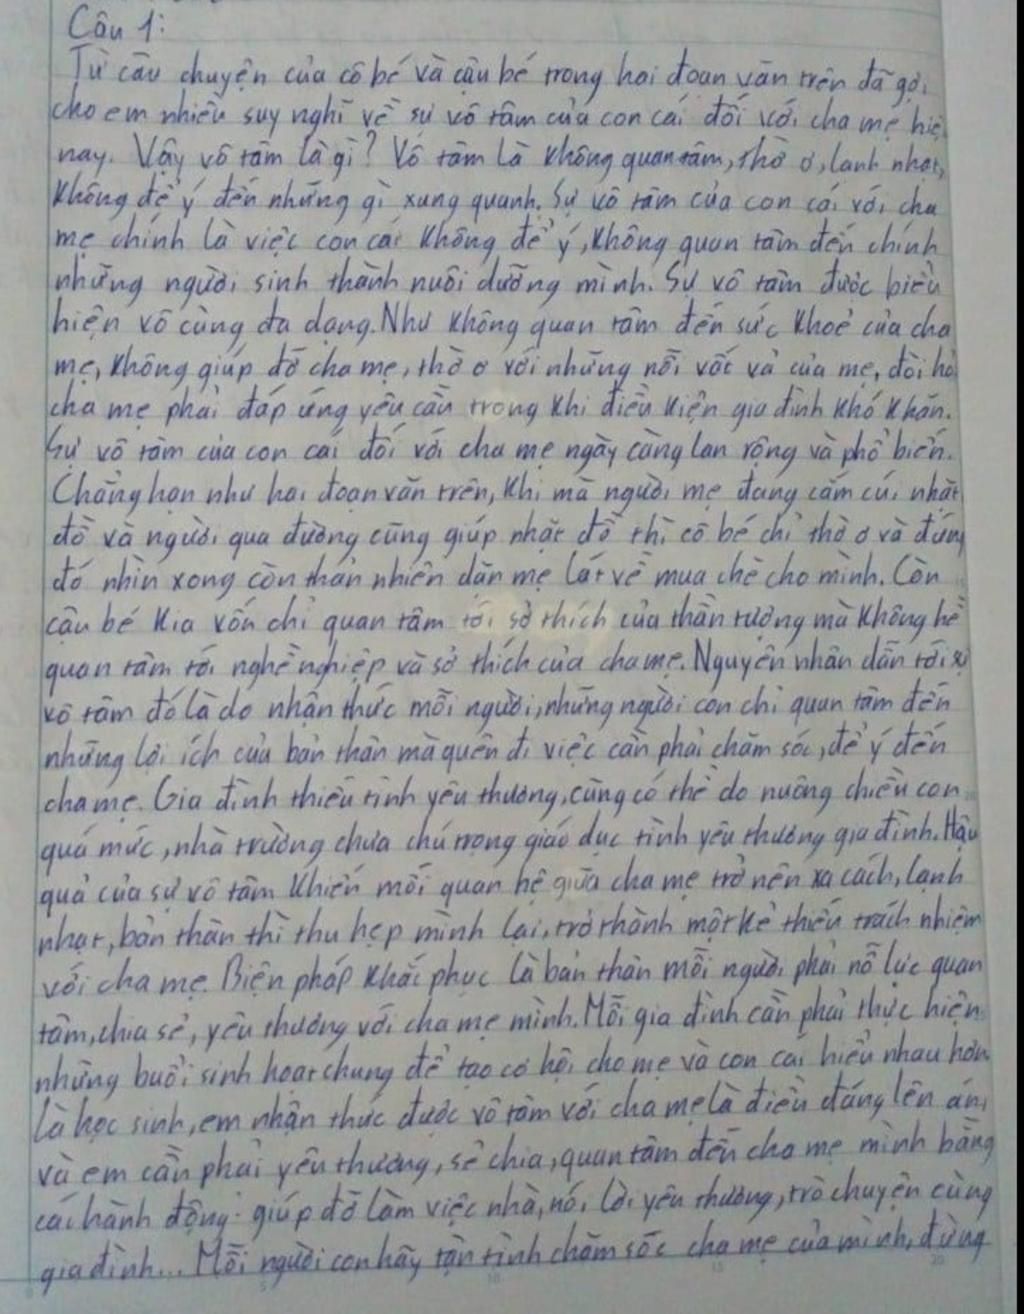 Câu 1:
Từ câu chuyện của cô bé và cậu bé trong hai đoạn văn trên đã gợi
cho em nhiều suy nghĩ về sự vô tâm của con cái đối với cha mẹ hiệ
nay. Vậy vô tâm là gì? Vô tâm là không quan tâm, thờ ơ, lạnh nhạt,
không để ý đến những gì xung quanh. Sự vô tâm của con cái với cha
mẹ chính là việc con cái không để ý, không quan tâm đến chính
những người sinh thành nuôi dưỡng mình. Sự vô tâm được biểu
hiện vô cùng đa dạng. Như không quan tâm đến sức khoẻ của cha
mẹ, không giúp đỡ cha mẹ, thờ ơ với những nỗi vất vả của mẹ, đòi hỏ
cha mẹ phải đáp ứng yêu cầu trong khi điều kiện gia đình khó khăn.
Sự vô tâm của con cái đối với cha mẹ ngày càng lan rộng và phổ biến.
Chẳng hạn như hai đoạn văn trên, khi mà người mẹ đang cắm cúi nhặt
đồ và người qua đường cũng giúp nhặt đồ thì cô bé chỉ thờ ơ và đứng
đó nhìn xong còn thản nhiên dặn mẹ lát về mua chè cho mình. Còn
cậu bé kia vốn chỉ quan tâm tới sở thích của thần tượng mà không hề
quan tâm tới nghề nghiệp và sở thích của cha mẹ. Nguyên nhân dẫn tới sự
vô tâm đó là do nhận thức mỗi người, những người con chỉ quan tâm đến
những lợi ích của bản thân mà quên đi việc cần phải chăm sóc, để ý đến
cha mẹ. Gia đình thiếu tình yêu thương, cũng có thể do nuông chiều con
quá mức, nhà trường chưa chú trọng giáo dục tình yêu thương gia đình. Hậu
quả của sự vô tâm khiến mối quan hệ giữa cha mẹ trở nên xa cách, lạnh
nhạt, bản thân thì thu hẹp mình lại, trở thành một kẻ thiếu trách nhiệm
với cha mẹ. Biện pháp khắc phục là bản thân mỗi người phải nỗ lực quan
tâm, chia sẻ, yêu thương với cha mẹ mình. Mỗi gia đình cần phải thực hiện
những buổi sinh hoạt chung để tạo cơ hội cho mẹ và con cái hiểu nhau hơn
là học sinh, em nhận thức được vô tâm với cha mẹ là điều đáng lên án,
và em cần phải yêu thương, sẻ chia, quan tâm đến cha mẹ mình bằng
các hành động: giúp đỡ làm việc nhà, nói lời yêu thương, trò chuyện cùng
gia đình... Mỗi người con hãy tận tình chăm sóc cha mẹ của mình, đừng